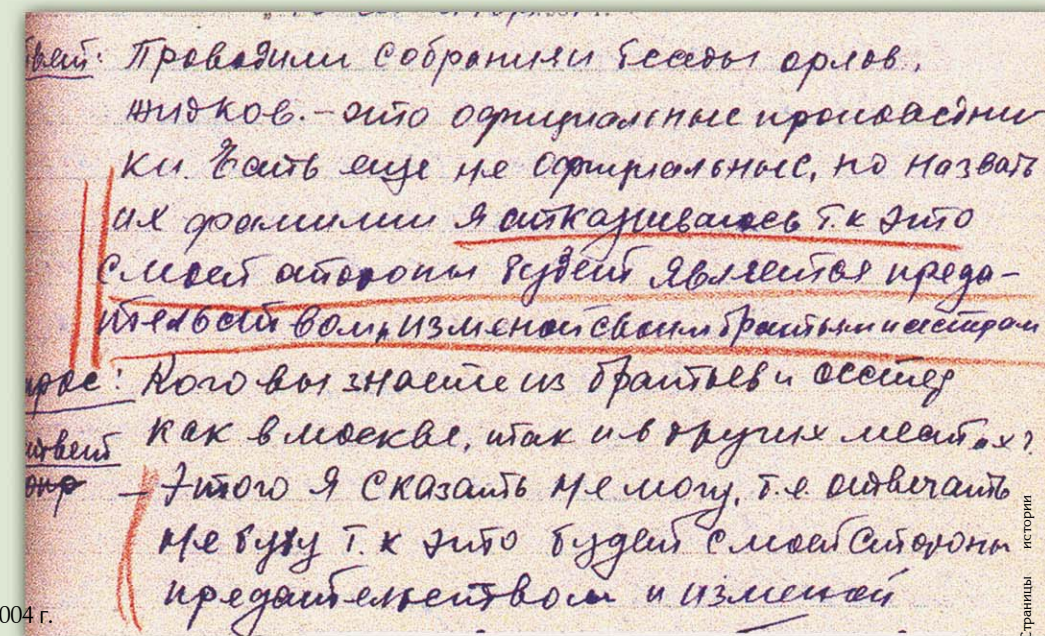 твет: Проводили собрания беседы орлов,
жидков. – это официальные проповедни-
ки. Есть еще не официальные, но назвать
их фамилии я отказываюсь т.к это
с моей стороны будет является преда-
тельством, изменой своим братьям и сестрам
прос: Кого вы знаете из братьев и сестер
как в москве, так и в других местах?
ответ
– Этого я сказать не могу, т.е. отвечать
не буду т.к это будет с моей стороны
предательством и изменой
004 г.
Страницы истории